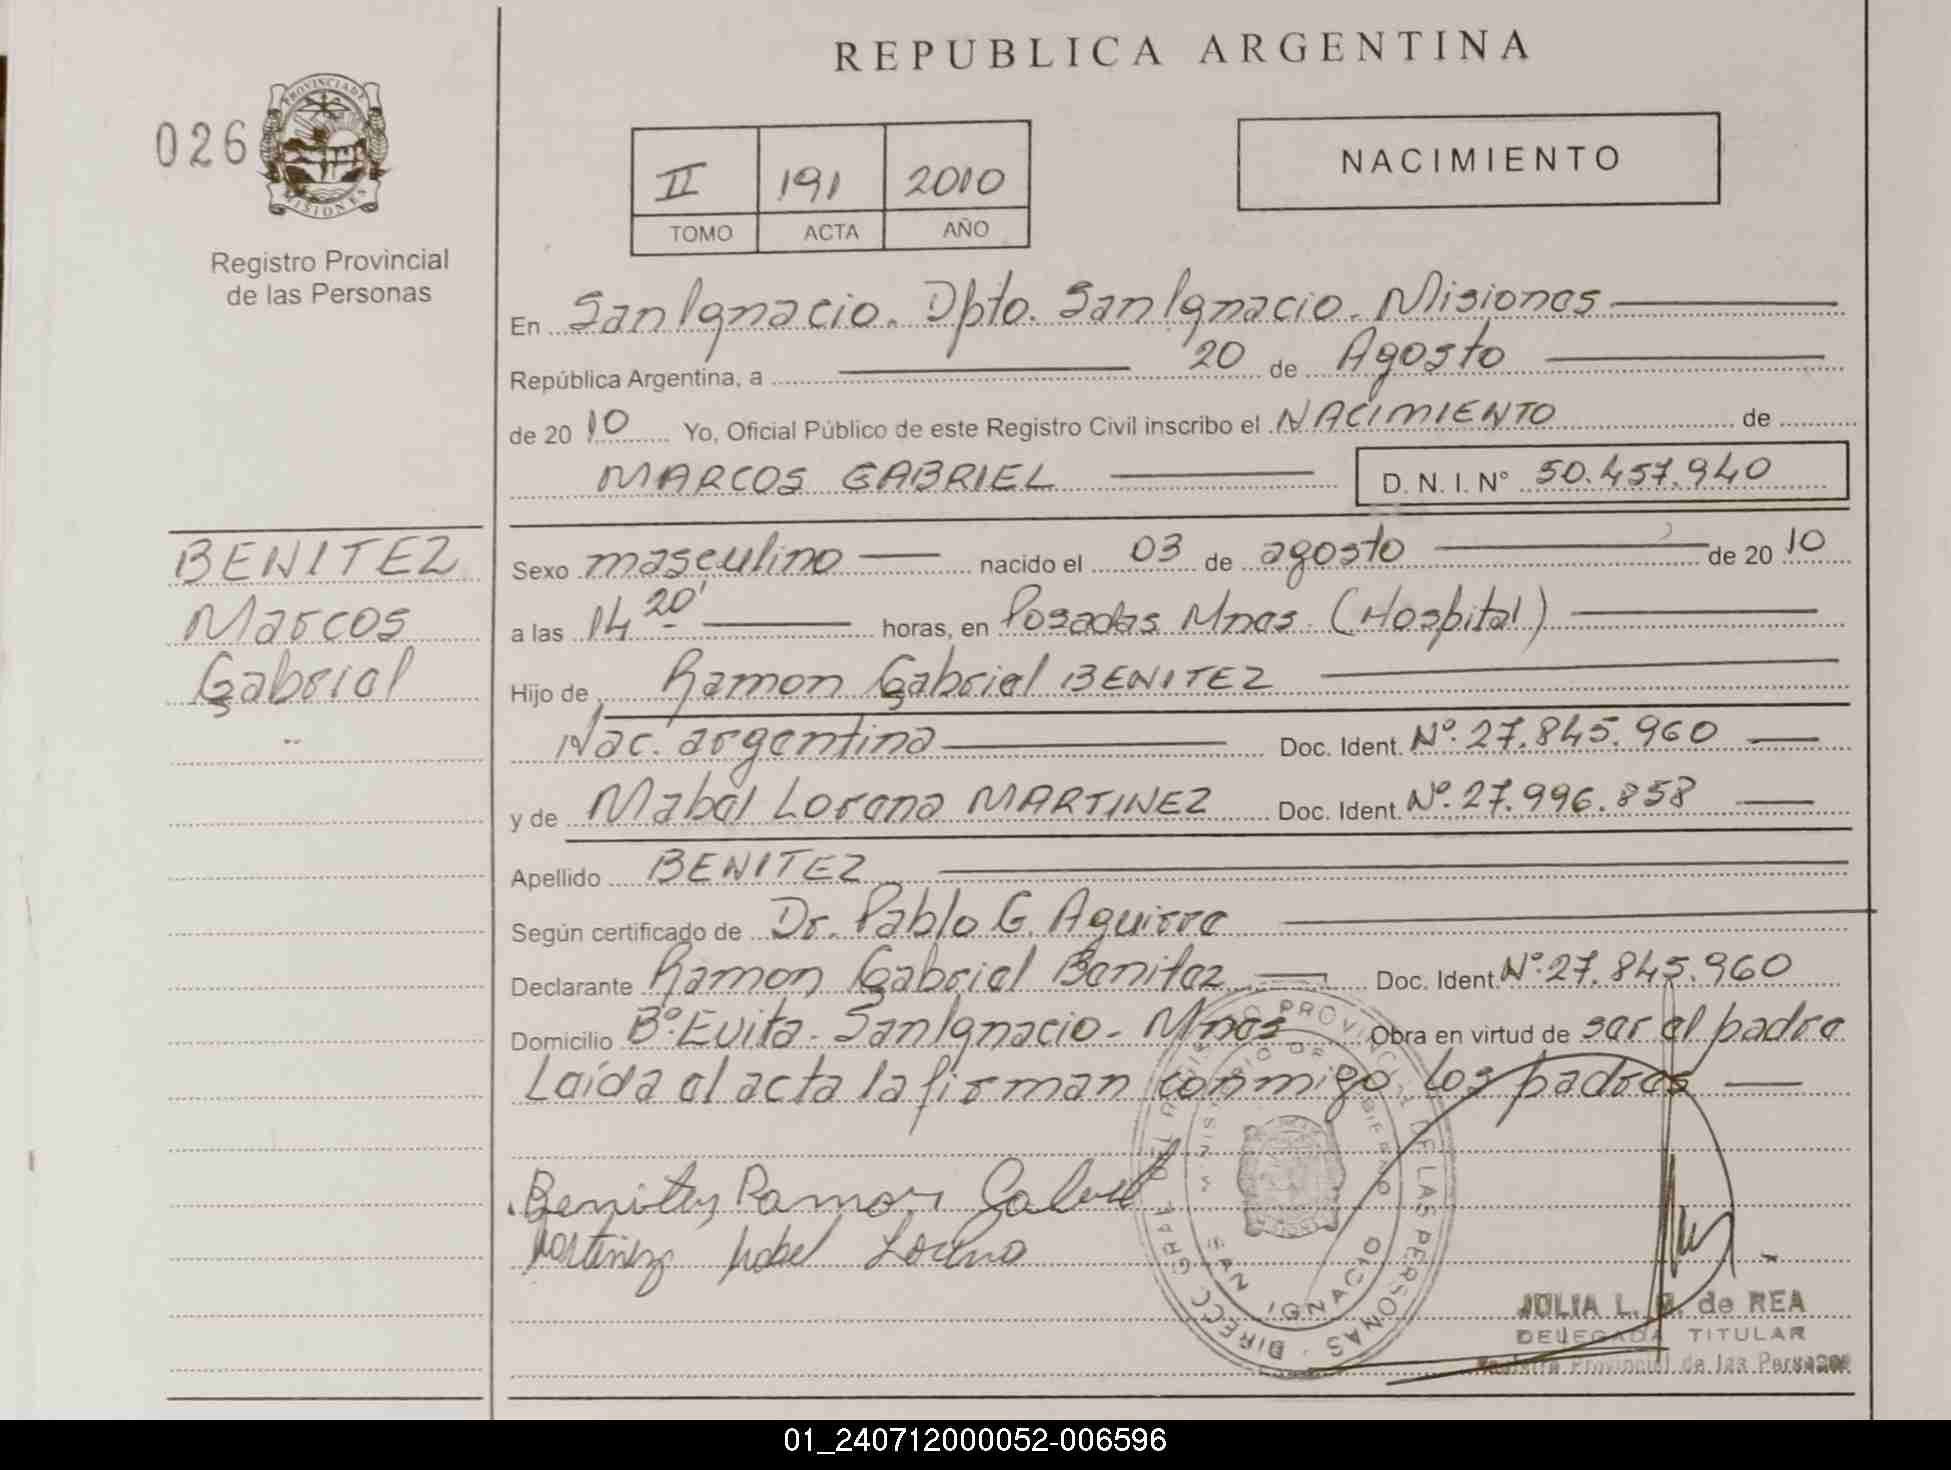 REPUBLICA ARGENTINA
026
PROVINCIA DE
MISIONES
Registro Provincial
de las Personas
II 191 2010
TOMO ACTA AÑO
NACIMIENTO
En San Ignacio. Dpto. San Ignacio. Misiones
República Argentina, a 20 de Agosto
de 20 10 Yo, Oficial Público de este Registro Civil inscribo el NACIMIENTO de
MARCOS GABRIEL D. N. I. N° 50.457.940
BENITEZ
Marcos
Gabriel
Sexo masculino nacido el 03 de agosto de 20 10
a las 14 20' horas, en Posadas Mnes. (Hospital)
Hijo de Ramon Gabriel BENITEZ
Nac. argentina Doc. Ident. N°. 27.845.960
y de Mabel Lorena MARTINEZ Doc. Ident. N°. 27.996.858
Apellido BENITEZ
Según certificado de Dr. Pablo G. Aguirre
Declarante Ramon Gabriel Benitez Doc. Ident. N°. 27.845.960
Domicilio B°. Evita - San Ignacio - Mnes Obra en virtud de ser el padre
Leída el acta la firman conmigo los padres
Benitez Ramon Gabriel
Martinez Mabel Lorena
DIRECC. GRAL. DEL REGISTRO PROVINCIAL DE LAS PERSONAS
MINISTERIO DE GOBIERNO
SAN IGNACIO
JULIA L. de REA
DELEGADA TITULAR
Registro Provincial de las Personas
01_240712000052-006596